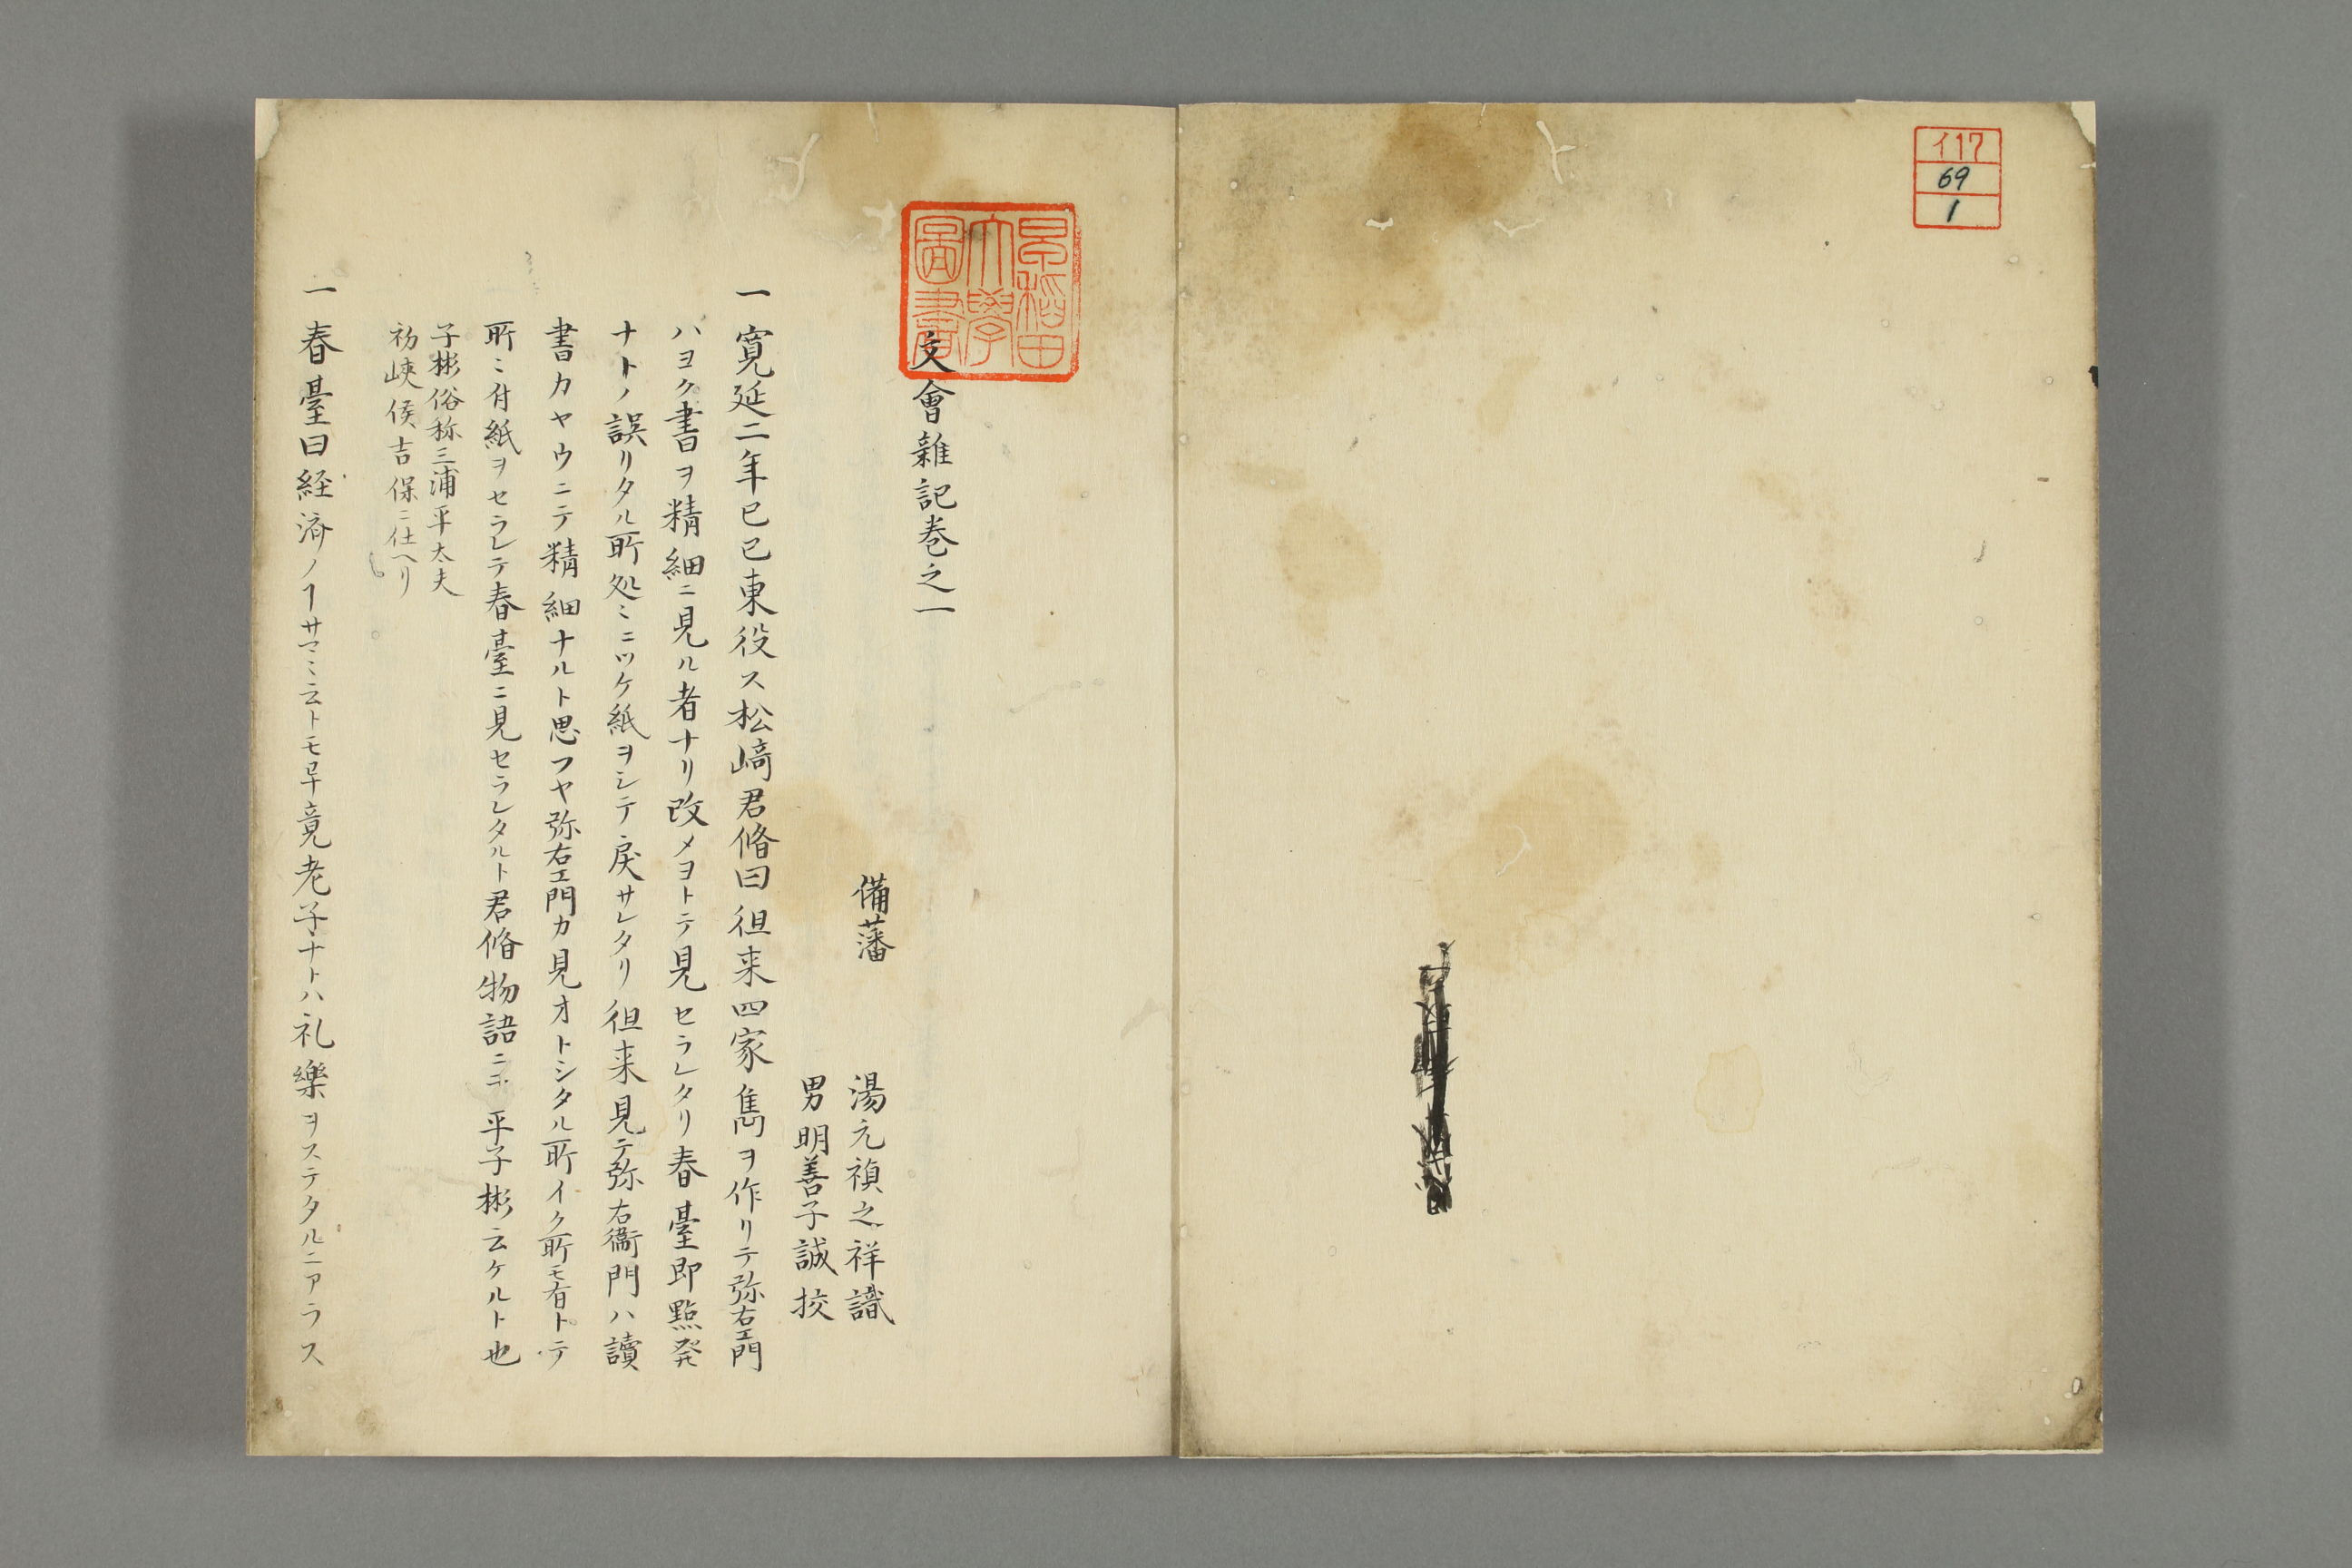 イ17
69
1
早稲田
大學
圖書
文會雜記巻之一
備藩　湯元禎之祥識
男明善子誠挍
一寛延二年己巳東役ス松﨑君脩曰徂来四家雋ヲ作リテ弥右エ門
ハヨク書ヲ精細ニ見ル者ナリ改メヨトテ見セラレタリ春臺即點発
ナトノ誤リタル所処〻ニツケ紙ヲシテ戻サレタリ徂来見テ弥右衞門ハ讀
書カヤウニテ精細ナルト思フヤ弥右エ門カ見オトシタル所イク所モ有トテ
所〻付紙ヲセラレテ春臺ニ見セラレタルト君脩物語ニテ平子彬云ケルト也
子彬俗称三浦平太夫
初峽侯吉保ニ仕ヘリ
一春臺曰経済ノヿサマ〻云トモ畢竟老子ナトハ礼樂ヲステタルニアラス